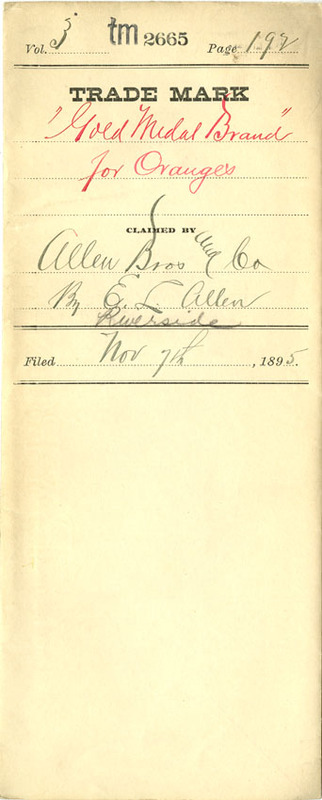 Vol. 3 tm 2665 Page 192
TRADE MARK
"Gold Medal Brand"
for Oranges
CLAIMED BY
Allen Bros and Co
By E. L. Allen
Riverside
Filed Nov 7th, 1895.